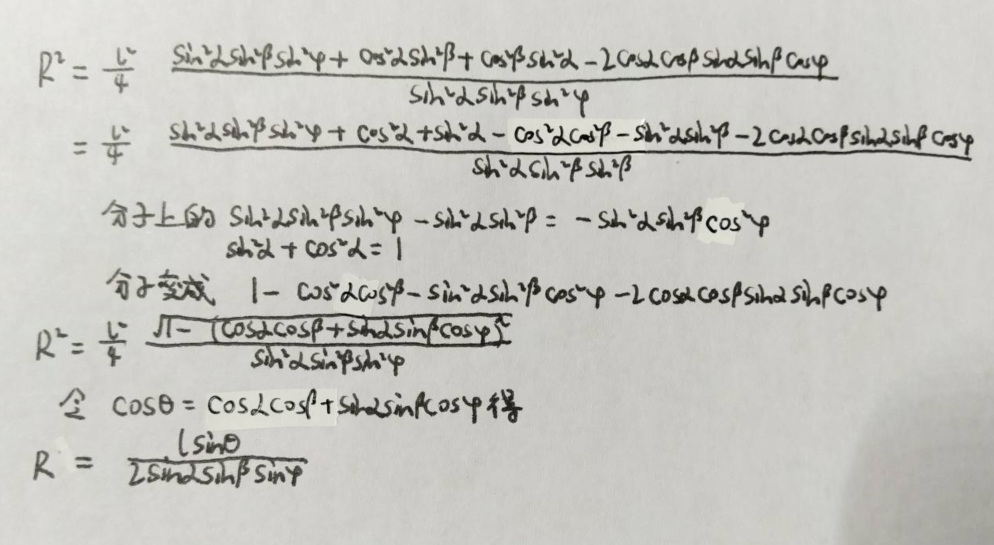 R² = l²/4 (sin²αsin²βsin²φ + cos²αsin²β + cos²βsin²α - 2cosαcosβsinαsinβcosφ)/(sin²αsin²βsin²φ)
= l²/4 (sin²αsin²βsin²φ + cos²α + sin²α - cos²αcos²β - sin²αsin²β - 2cosαcosβsinαsinβcosφ)/(sin²αsin²βsin²β)
分子上的 sin²αsin²βsin²φ - sin²αsin²β = -sin²αsin²βcos²φ
sin²α + cos²α = 1
分子变成 1 - cos²αcos²β - sin²αsin²βcos²φ - 2cosαcosβsinαsinβcosφ
R² = l²/4 √(1 - (cosαcosβ + sinαsinβcosφ)²)/(sin²αsin²βsin²φ)
令 cosθ = cosαcosβ + sinαsinβcosφ 得
R = lsinθ/(2sinαsinβsinφ)